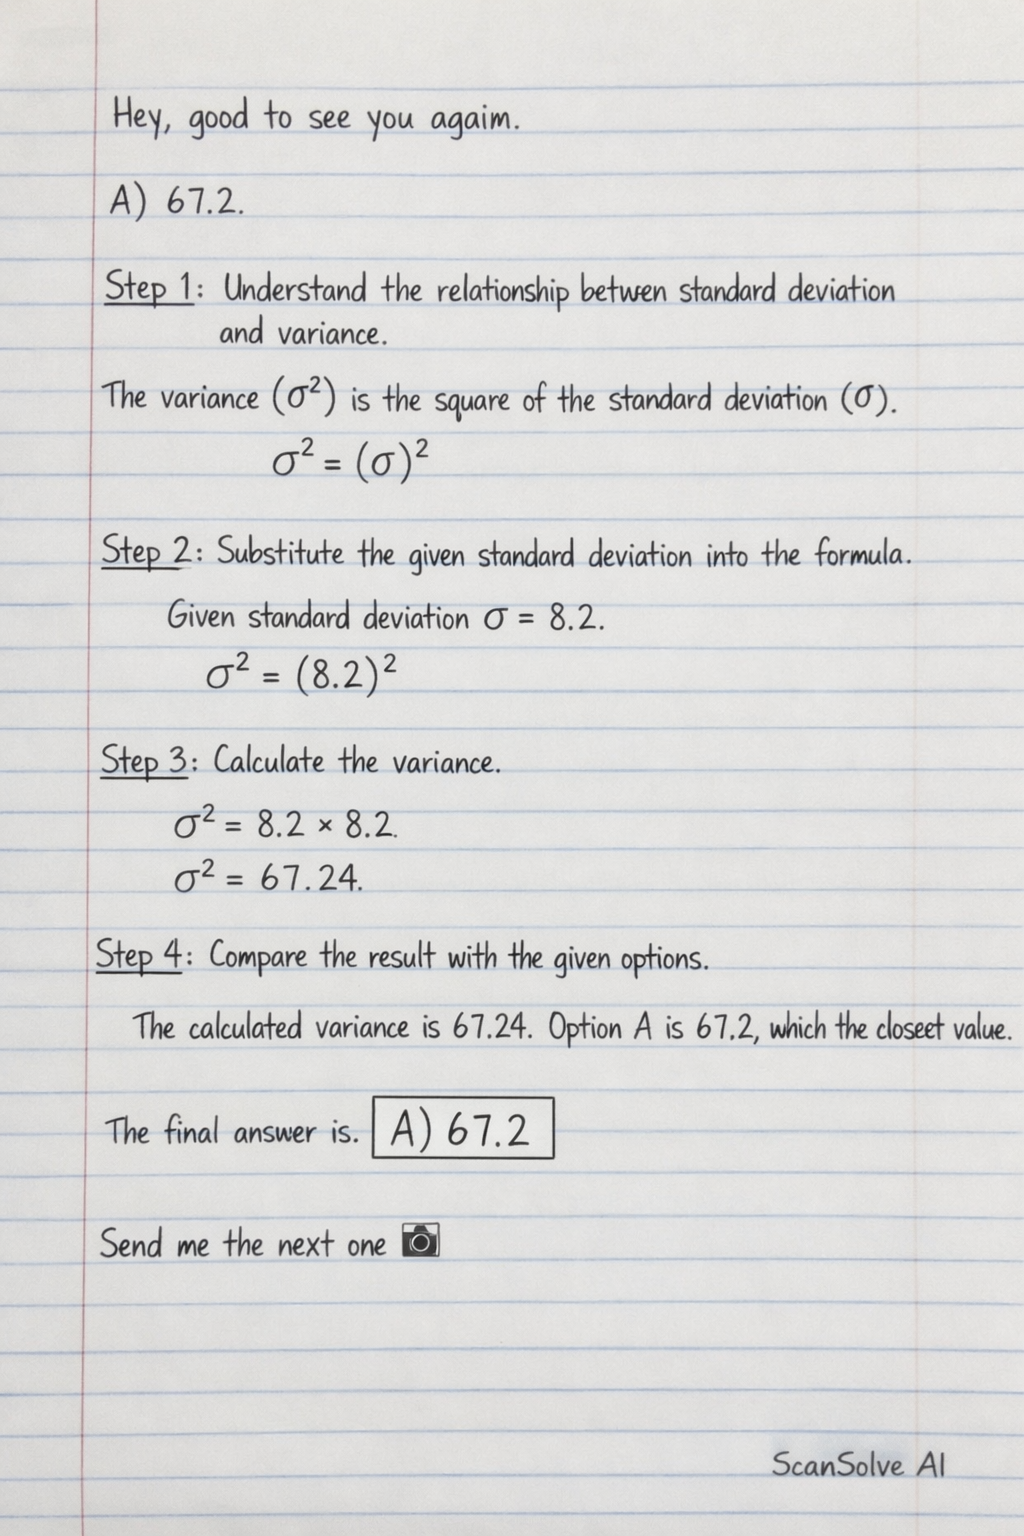 Hey, good to see you agaim.
A) 67.2.
Step 1: Understand the relationship betwen standard deviation
and variance.
The variance (σ²) is the square of the standard deviation (σ).
σ² = (σ)²
Step 2: Substitute the given standard deviation into the formula.
Given standard deviation σ = 8.2.
σ² = (8.2)²
Step 3: Calculate the variance.
σ² = 8.2 × 8.2.
σ² = 67.24.
Step 4: Compare the result with the given options.
The calculated variance is 67.24. Option A is 67.2, which the closeet value.
The final answer is. A) 67.2
Send me the next one 📷
ScanSolve AI